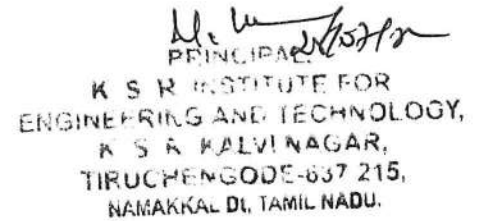 PRINCIPAL
K S R INSTITUTE FOR
ENGINEERING AND TECHNOLOGY,
K S R KALVI NAGAR,
TIRUCHENGODE-637 215,
NAMAKKAL Dt, TAMIL NADU.